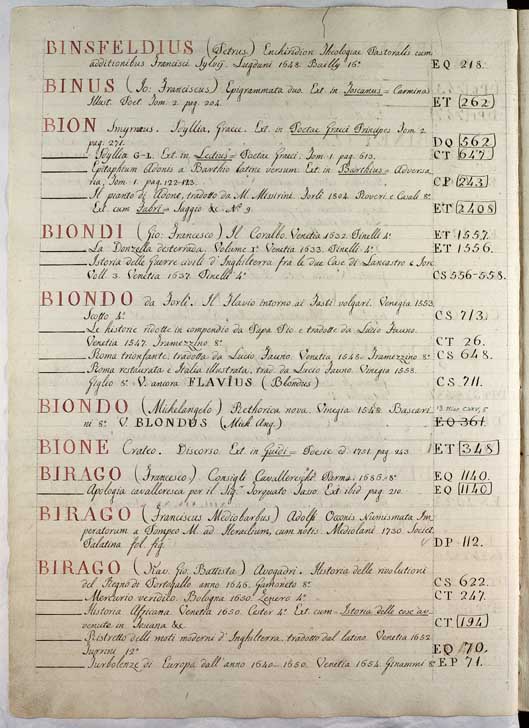 BINSFELDIUS (Petrus) Enchiridion Theologiae Pastoralis cum
additionibus Francisci Sylvij. Lugduni 1648. Bailly 16° EQ 218.
BINUS (Io: Franciscus) Epigrammata duo. Ext. in Toscanus = Carmina
Illust. Poet. Tom. 2. pag. 204. ET 262
BION Smyrnæus. Idyllia, Græce. Ext. in Poetae Græci Principes Tom. 2.
pag. 271. DQ 562
Idyllia G-L. Ext. in Lectius = Poetae Græci. Tom. 1. pag. 513. CT 647
Epitaphium Adonis a Barthio latine versum. Ext. in Barthius = Adversa
ria, Tom. 1. pag. 122-123. CP 243
Il pianto di Adone, tradotto da M. Missirini. Forlì 1804. Roveri e Casali 8°
Ext. cum Fabri = Saggio & N° 9. ET 2408
BIONDI (Gio: Francesco) Il Coralbo. Venetia 1632. Pinelli 4° ET 1557.
La Donzella desterrada. Volume 1° Venetia 1633. Pinelli 4° ET 1556.
Istoria delle Guerre civili d'Inghilterra fra le due Case di Lancastro e Iorc
Voll. 3. Venetia 1637. Pinelli 4° CS 556-558.
BIONDO da Forlì. Il Flavio intorno ai Fasti volgari. Venegia 1553.
4° CS 713.
Le historie ridotte in compendio da Papa Pio e tradotte da Lucio Fauno.
Venetia 1547. Tramezzino 8° CT 26.
Roma trionfante, tradotta da Lucio Fauno. Venetia 1548. Tramezzino 8° CS 648.
Roma restaurata e Italia illustrata, trad. da Lucio Fauno. Venegia 1558.
Giglio 8° V. ancora FLAVIUS (Blondus) CS 711.
BIONDO (Michelangelo) Rethorica nova. Vinegia 1548. Bascari
ni 8° V. BLONDUS (Mich. Ang.) EQ 361.
BIONE Crateo. Discorso. Ext. in Guidi = Poesie d. 1751. pag. 243. ET 348
BIRAGO (Francesco) Consigli Cavallereschi. Parma. 1686. 8° EQ 1140.
Apologia cavalleresca per il Sig. Torquato Tasso. Ext. ibid. pag. 210. EQ 1140
BIRAGO (Franciscus Mediobarbus) Adolfi Occonis Numismata Im
peratorum a Pompeo M. ad Heraclium, cum notis. Mediolani 1730. Societ.
Palatina fol. fig. DP 112.
BIRAGO (Kav. Gio. Battista) Avogadri. Historia delle rivolutioni
del Regno di Portogallo. anno 1646. 8° CS 622.
Mercurio veridico. Bologna 1650. Zenero 4° CT 247.
Historia Africana. Venetia 1650. 4° Ext. cum = Istoria delle cose av
venute in Toscana &c. CT 194
Ristretto delle moti moderni d'Inghilterra, tradotto dal latino. Venetia 1652.
Turrini 12° EQ 170.
Turbolenze di Europa dall'anno 1640-1650. Venetia 1654. Ginammi 8° EP 71.